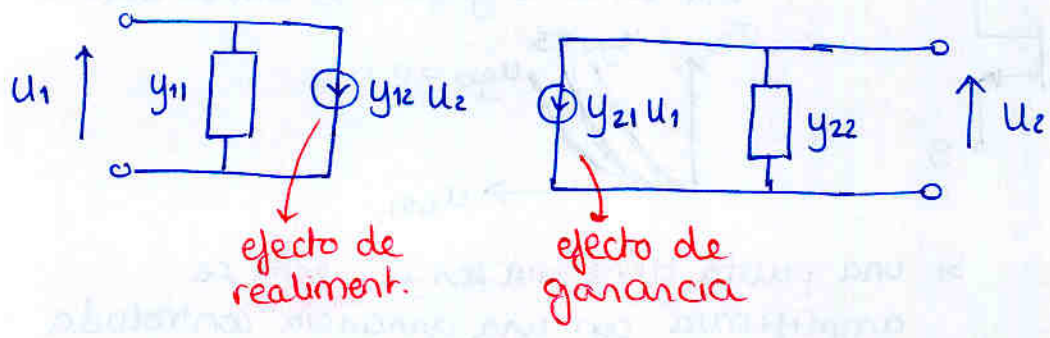 u₁
y₁₁
y₁₂ u₂
y₂₁ u₁
y₂₂
u₂
efecto de
realiment.
efecto de
ganancia